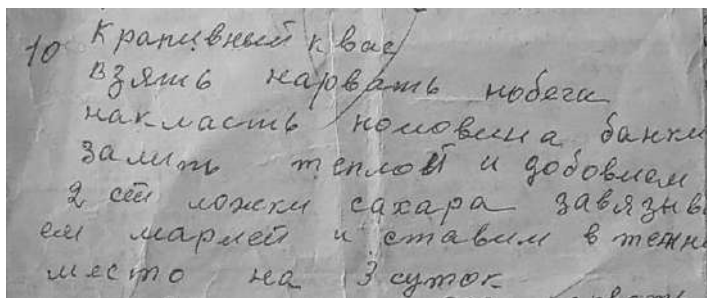 10 Крапивный квас
взять нарвать побеги
накласть половина банки
залить теплой и добовлем
2 ст ложки сахара завязыв
ем марлей и ставим в темн
место на 3 суток